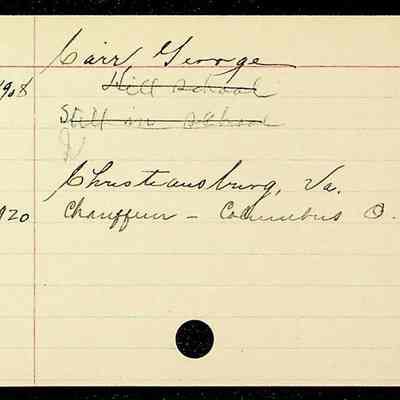 Carr, George
1908 Hill school
Still in school
Christiansburg, Va.
1920 Chauffeur - Columbus O.